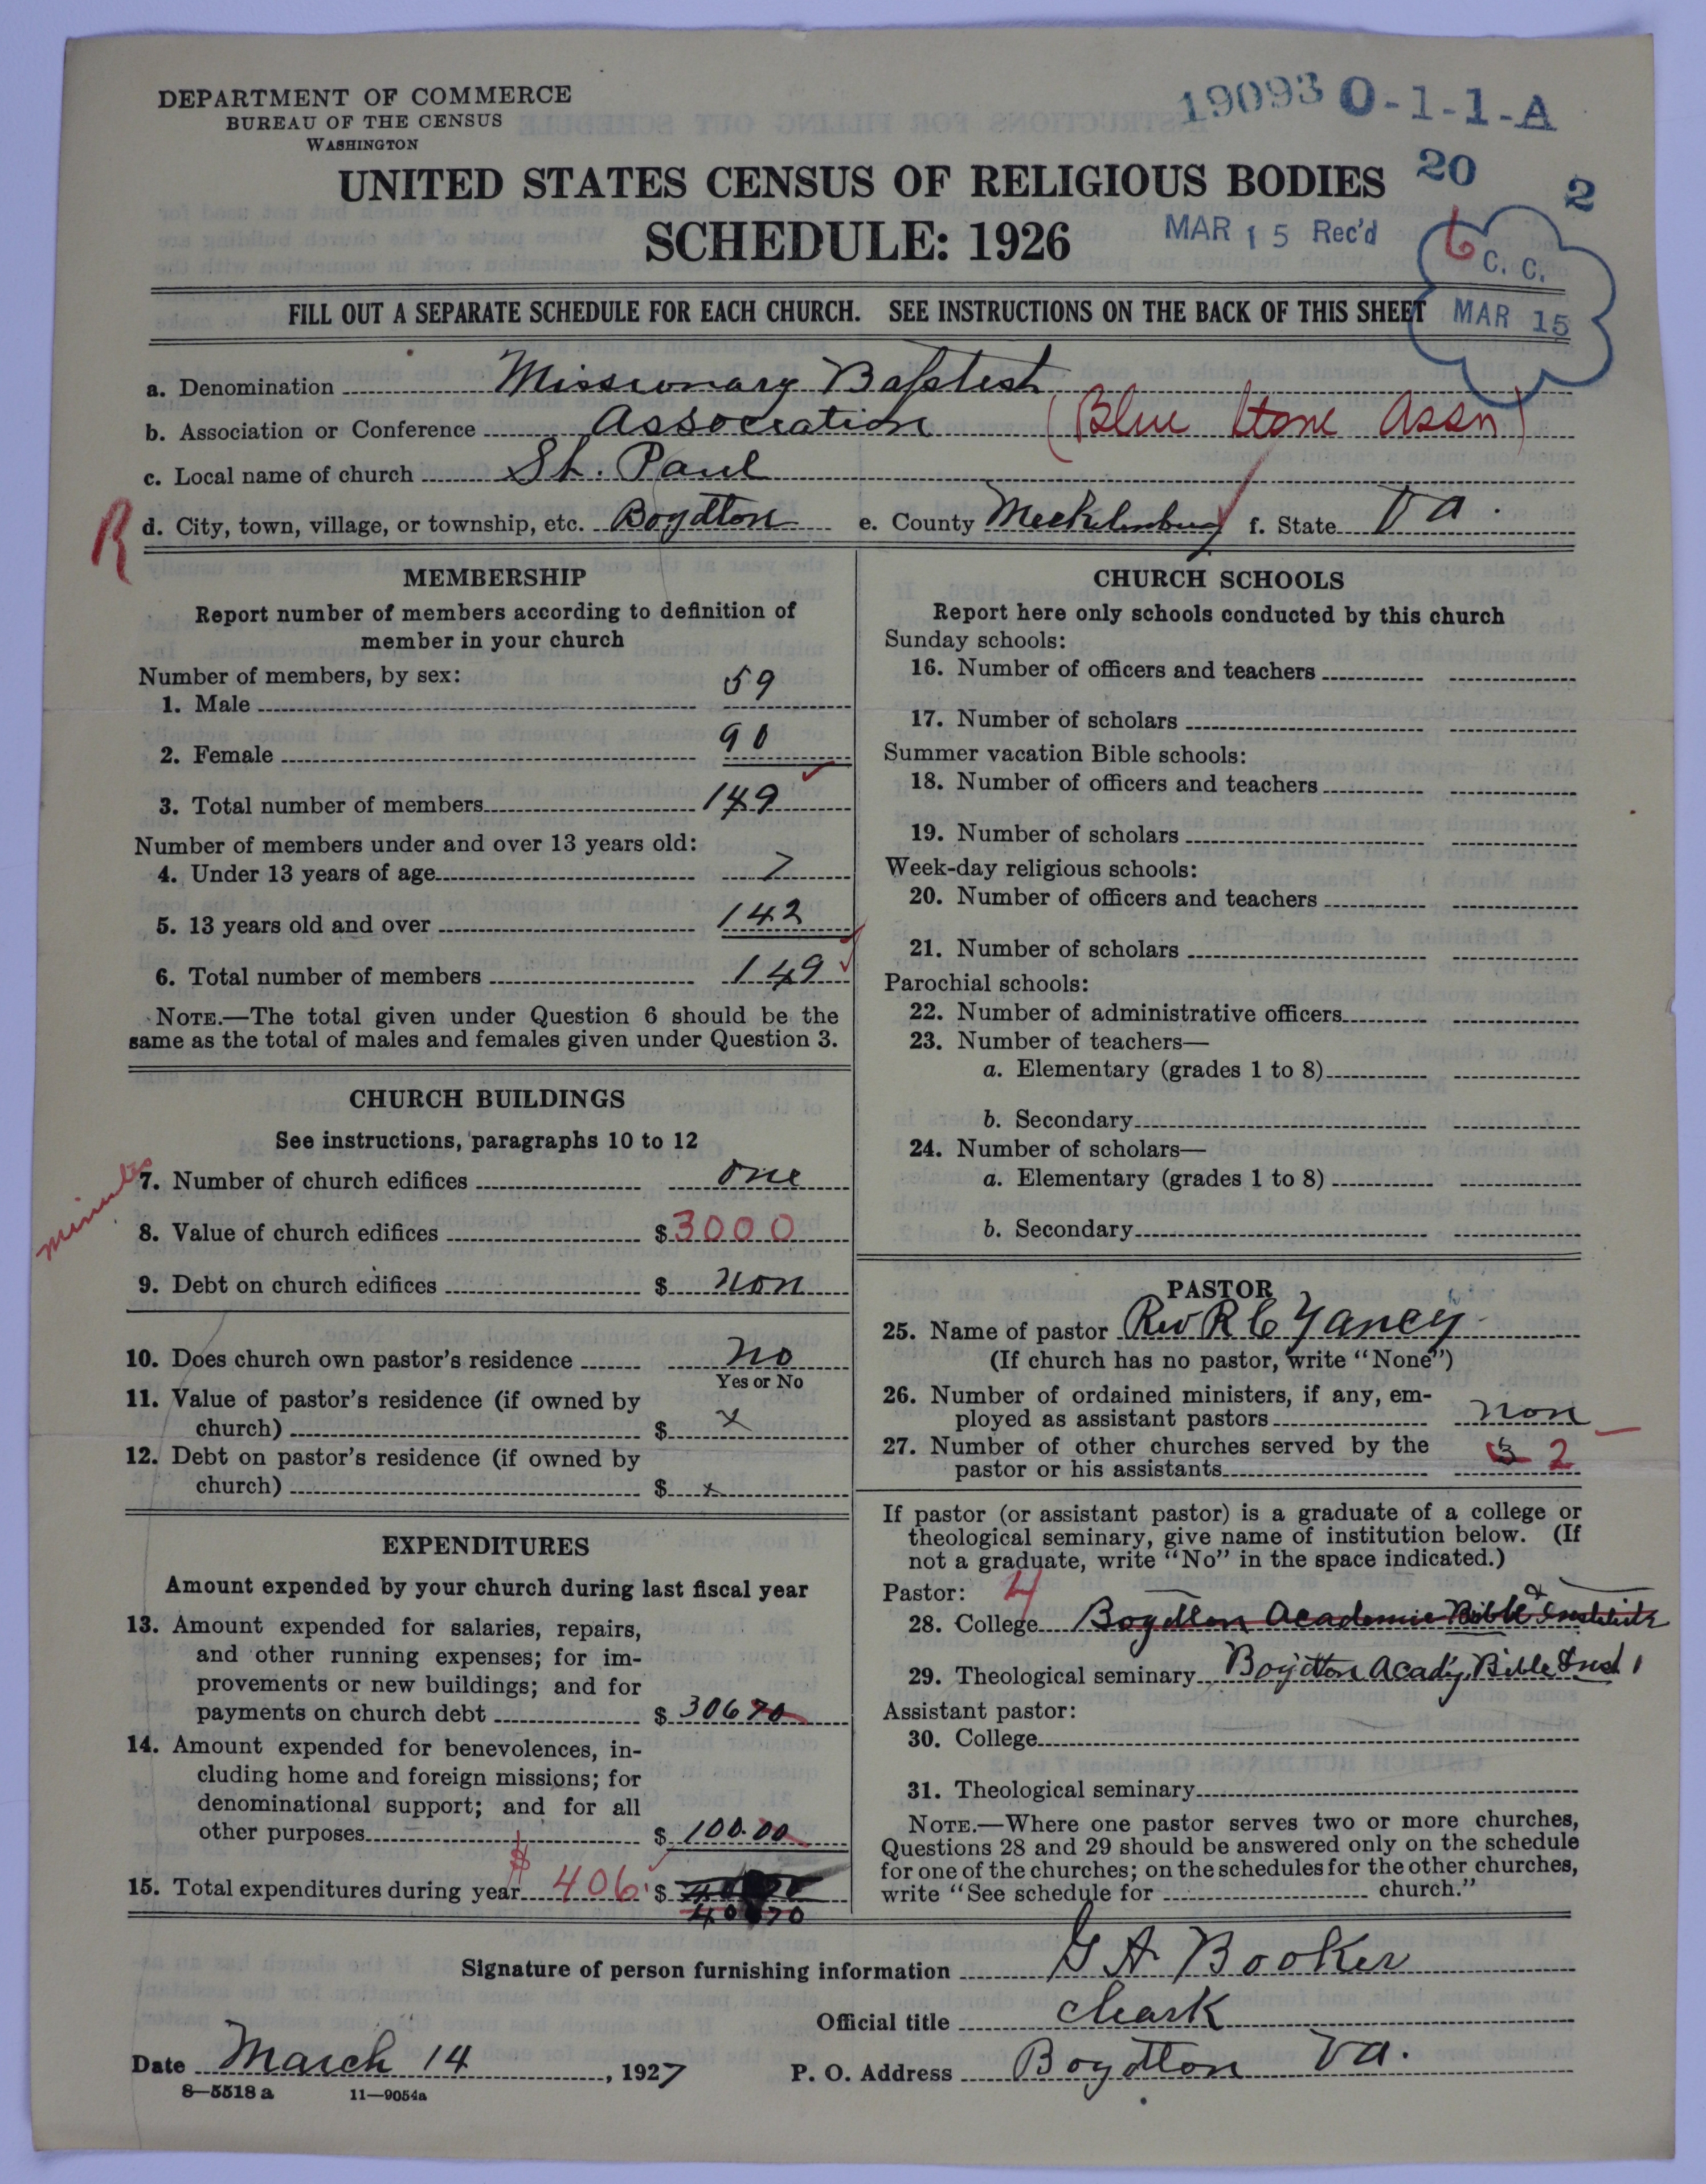 DEPARTMENT OF COMMERCE
BUREAU OF THE CENSUS
WASHINGTON
19093 0-1-1-A
UNITED STATES CENSUS OF RELIGIOUS BODIES
20
2
SCHEDULE: 1926
MAR 15 Rec'd
6
C. C.
MAR 15
FILL OUT A SEPARATE SCHEDULE FOR EACH CHURCH. SEE INSTRUCTIONS ON THE BACK OF THIS SHEET
a. Denomination Missionary Baptist
b. Association or Conference Association (Blue Stone Assn)
c. Local name of church St. Paul
R
d. City, town, village, or township, etc. Boydton e. County Mecklenburg f. State Va.
MEMBERSHIP
Report number of members according to definition of
member in your church
Number of members, by sex:
1. Male 59
2. Female 90
3. Total number of members 149
Number of members under and over 13 years old:
4. Under 13 years of age 7
5. 13 years old and over 142
6. Total number of members 149
NOTE.—The total given under Question 6 should be the
same as the total of males and females given under Question 3.
CHURCH BUILDINGS
See instructions, paragraphs 10 to 12
minutes
7. Number of church edifices one
8. Value of church edifices $3000
9. Debt on church edifices $ non
10. Does church own pastor's residence no
Yes or No
11. Value of pastor's residence (if owned by
church) $ x
12. Debt on pastor's residence (if owned by
church) $ x
EXPENDITURES
Amount expended by your church during last fiscal year
13. Amount expended for salaries, repairs,
and other running expenses; for im-
provements or new buildings; and for
payments on church debt $ 306 70
14. Amount expended for benevolences, in-
cluding home and foreign missions; for
denominational support; and for all
other purposes $ 100.00
15. Total expenditures during year $ 406 $
CHURCH SCHOOLS
Report here only schools conducted by this church
Sunday schools:
16. Number of officers and teachers
17. Number of scholars
Summer vacation Bible schools:
18. Number of officers and teachers
19. Number of scholars
Week-day religious schools:
20. Number of officers and teachers
21. Number of scholars
Parochial schools:
22. Number of administrative officers
23. Number of teachers—
a. Elementary (grades 1 to 8)
b. Secondary
24. Number of scholars—
a. Elementary (grades 1 to 8)
b. Secondary
PASTOR
25. Name of pastor Rev R C Yancy
(If church has no pastor, write "None")
26. Number of ordained ministers, if any, em-
ployed as assistant pastors non
27. Number of other churches served by the
pastor or his assistants 3 2
If pastor (or assistant pastor) is a graduate of a college or
theological seminary, give name of institution below. (If
not a graduate, write "No" in the space indicated.)
Pastor: 4
28. College Boydton Academic Bible & Institute
29. Theological seminary Boydton Acady, Bible Inst 1
Assistant pastor:
30. College
31. Theological seminary
NOTE.—Where one pastor serves two or more churches,
Questions 28 and 29 should be answered only on the schedule
for one of the churches; on the schedules for the other churches,
write "See schedule for church."
Signature of person furnishing information G A Booker
Official title cleark
Date March 14, 1927 P. O. Address Boydton Va.
8—5518 a 11—9054a